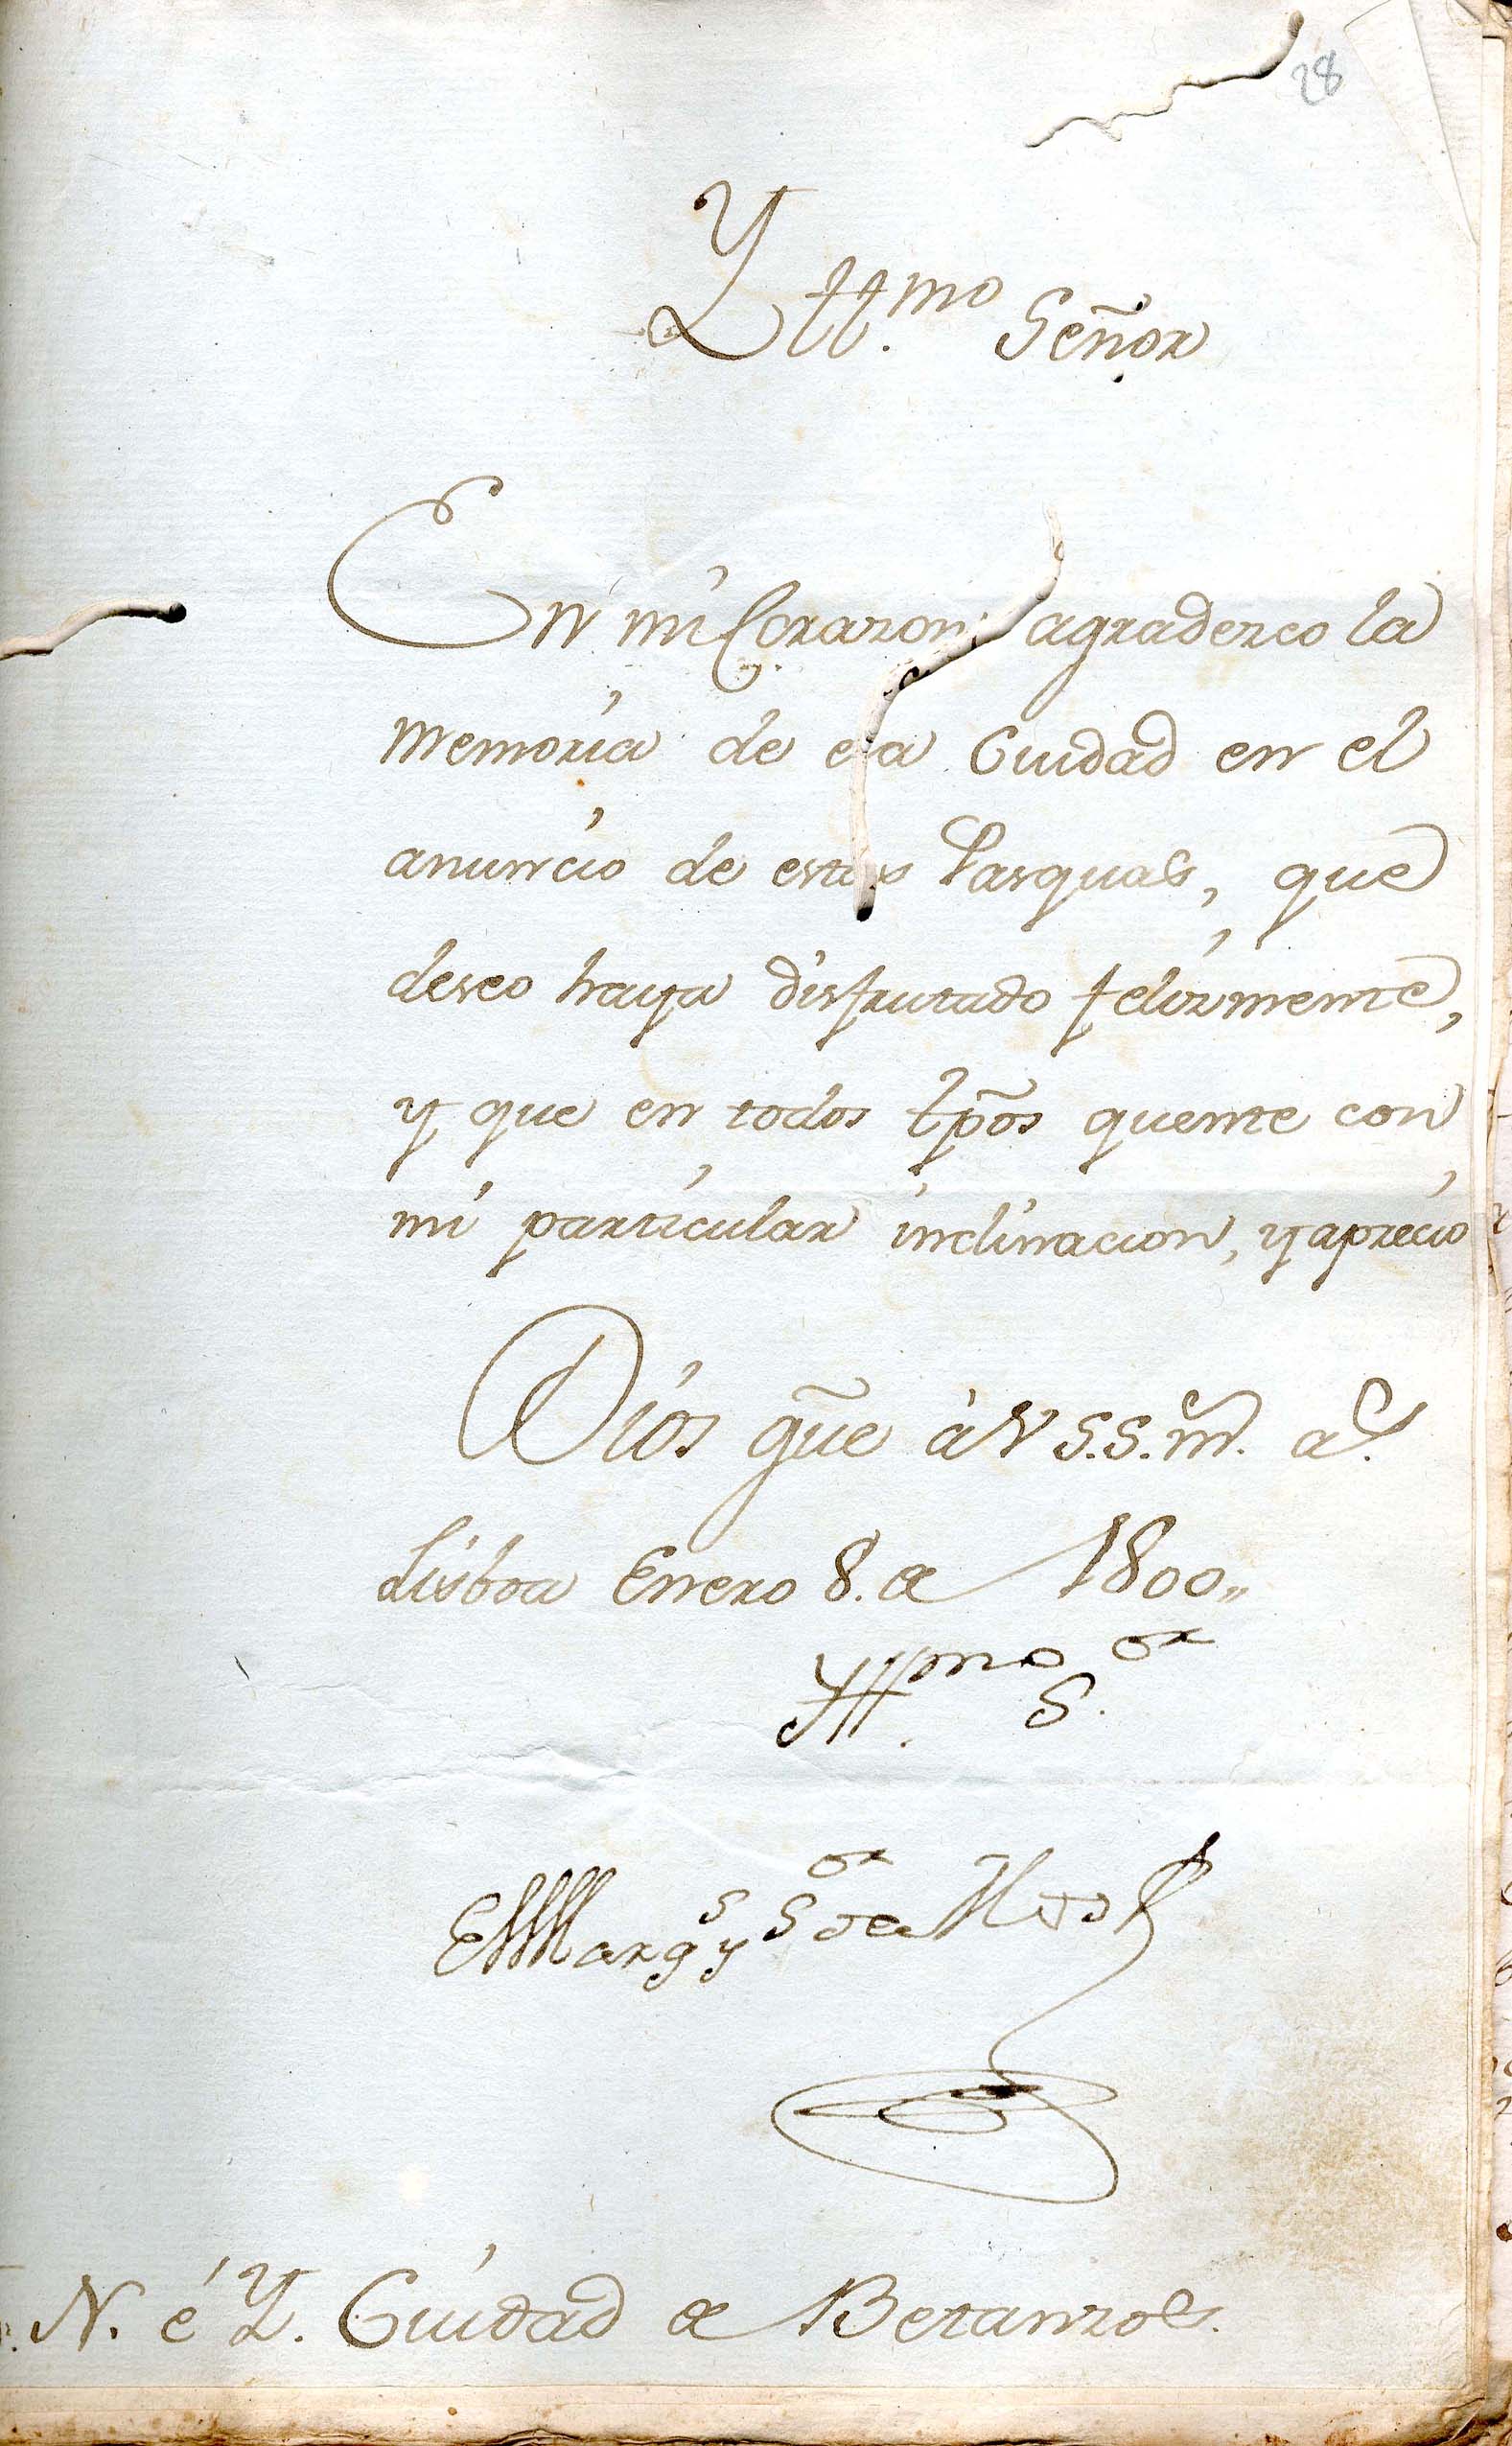 28
Yll.mo Señor
En mi Corazon agradezco la
memoria de esa Ciudad en el
anuncio de estas Pasquas, que
deseo haya disfrutado felizmente,
y que en todos tpõs quente con
mi particular inclinacion, y aprecio
Dios gũe à V.S.S. m.s a.s
Lisboa Enero 8. de 1800,,
Yll.mo S.or
El Marq.s y S.or de
N. é Y. Ciudad de Betanzos.